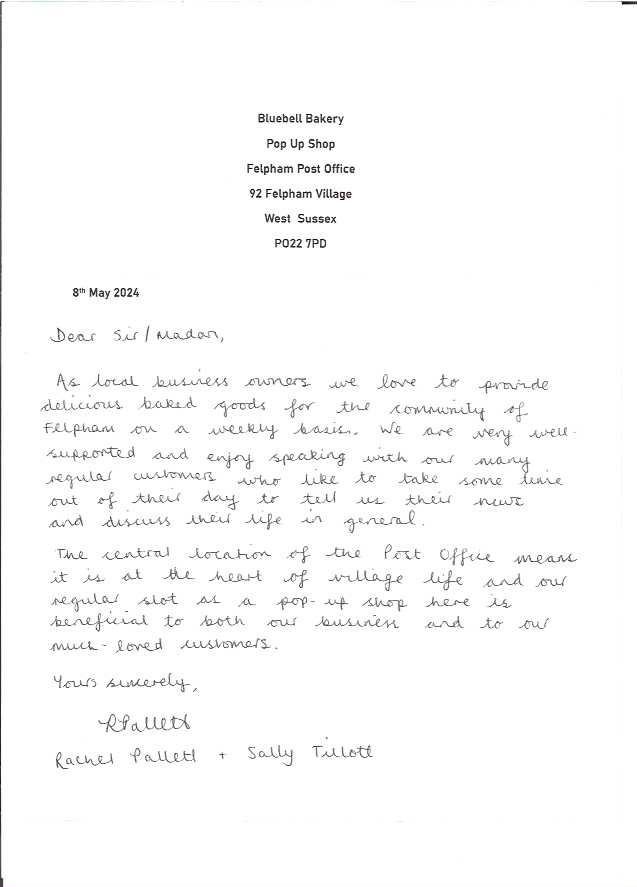 Bluebell Bakery
Pop Up Shop
Felpham Post Office
92 Felpham Village
West Sussex
PO22 7PD
8th May 2024
Dear Sir/Madam,
As local business owners we love to provide
delicious baked goods for the community of
Felpham on a weekly basis. We are very well-
supported and enjoy speaking with our many
regular customers who like to take some time
out of their day to tell us their news
and discuss their life in general.
The central location of the Post Office means
it is at the heart of village life and our
regular slot as a pop-up shop here is
beneficial to both our business and to our
much-loved customers.
Yours sincerely,
RPallett
Rachel Pallett + Sally Tillott